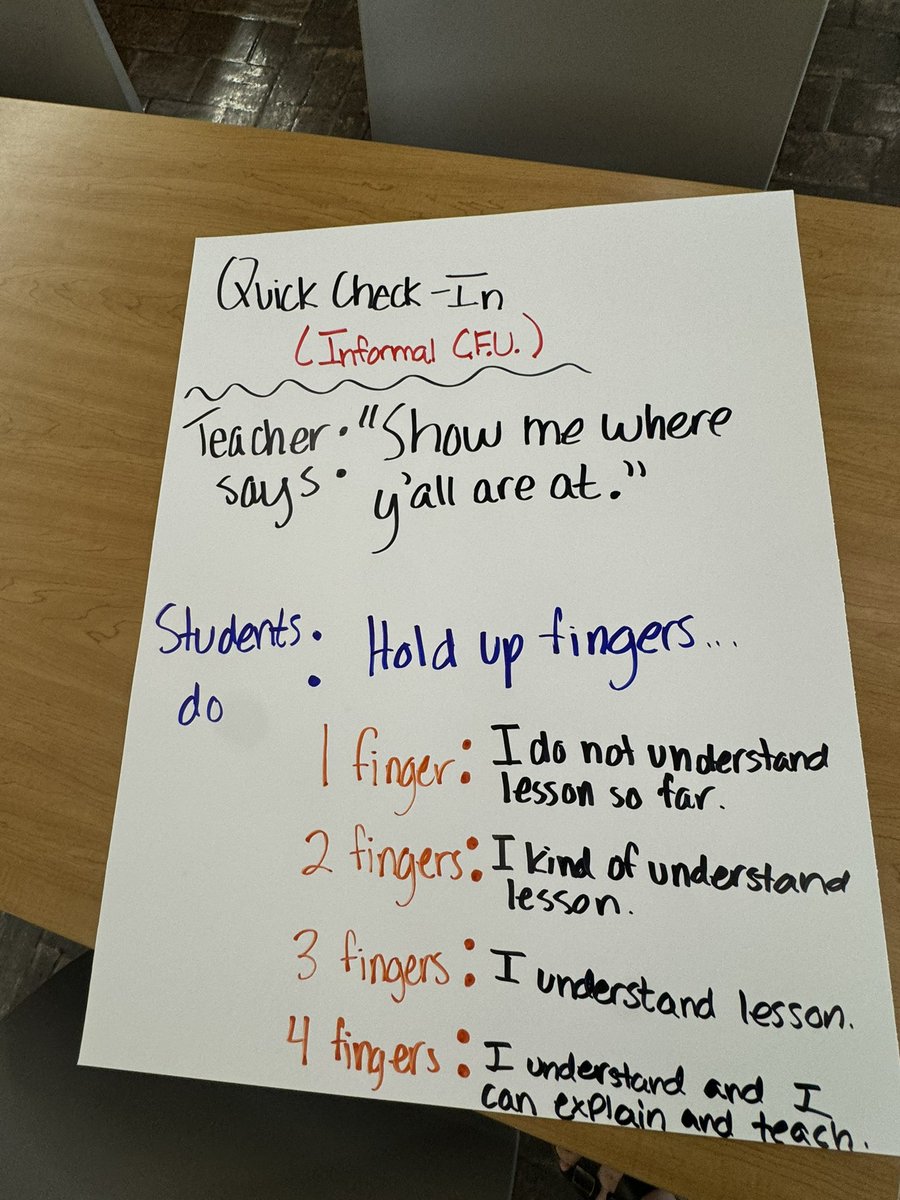 Quick Check-In
(Informal C.F.U.)
Teacher says: "Show me where
y'all are at."
Students do: Hold up fingers...
1 finger: I do not understand
lesson so far.
2 fingers: I kind of understand
lesson.
3 fingers: I understand lesson.
4 fingers: I understand and I
can explain and teach.